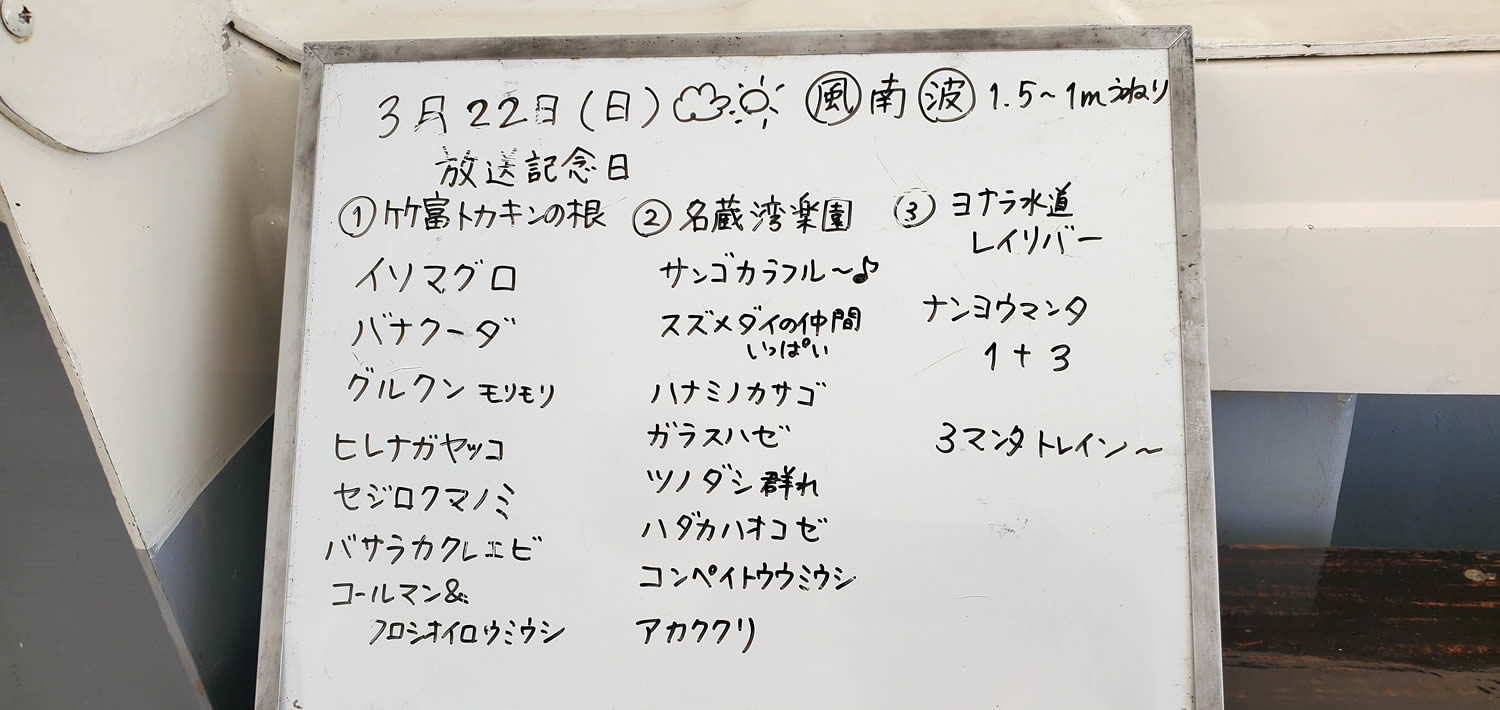 3月22日(日) 風 南 波 1.5~1mうねり
放送記念日
① 竹富トカキンの根
イソマグロ
バナクーダ
グルクン モリモリ
ヒレナガヤッコ
セジロクマノミ
バサラカクレエビ
コールマン&
クロシオイロウミウシ
② 名蔵湾楽園
サンゴカラフル~♪
スズメダイの仲間
いっぱい
ハナミノカサゴ
ガラスハゼ
ツノダシ 群れ
ハダカハオコゼ
コンペイトウウミウシ
アカククリ
③ ヨナラ水道
レイリバー
ナンヨウマンタ
1+3
3マンタトレイン~